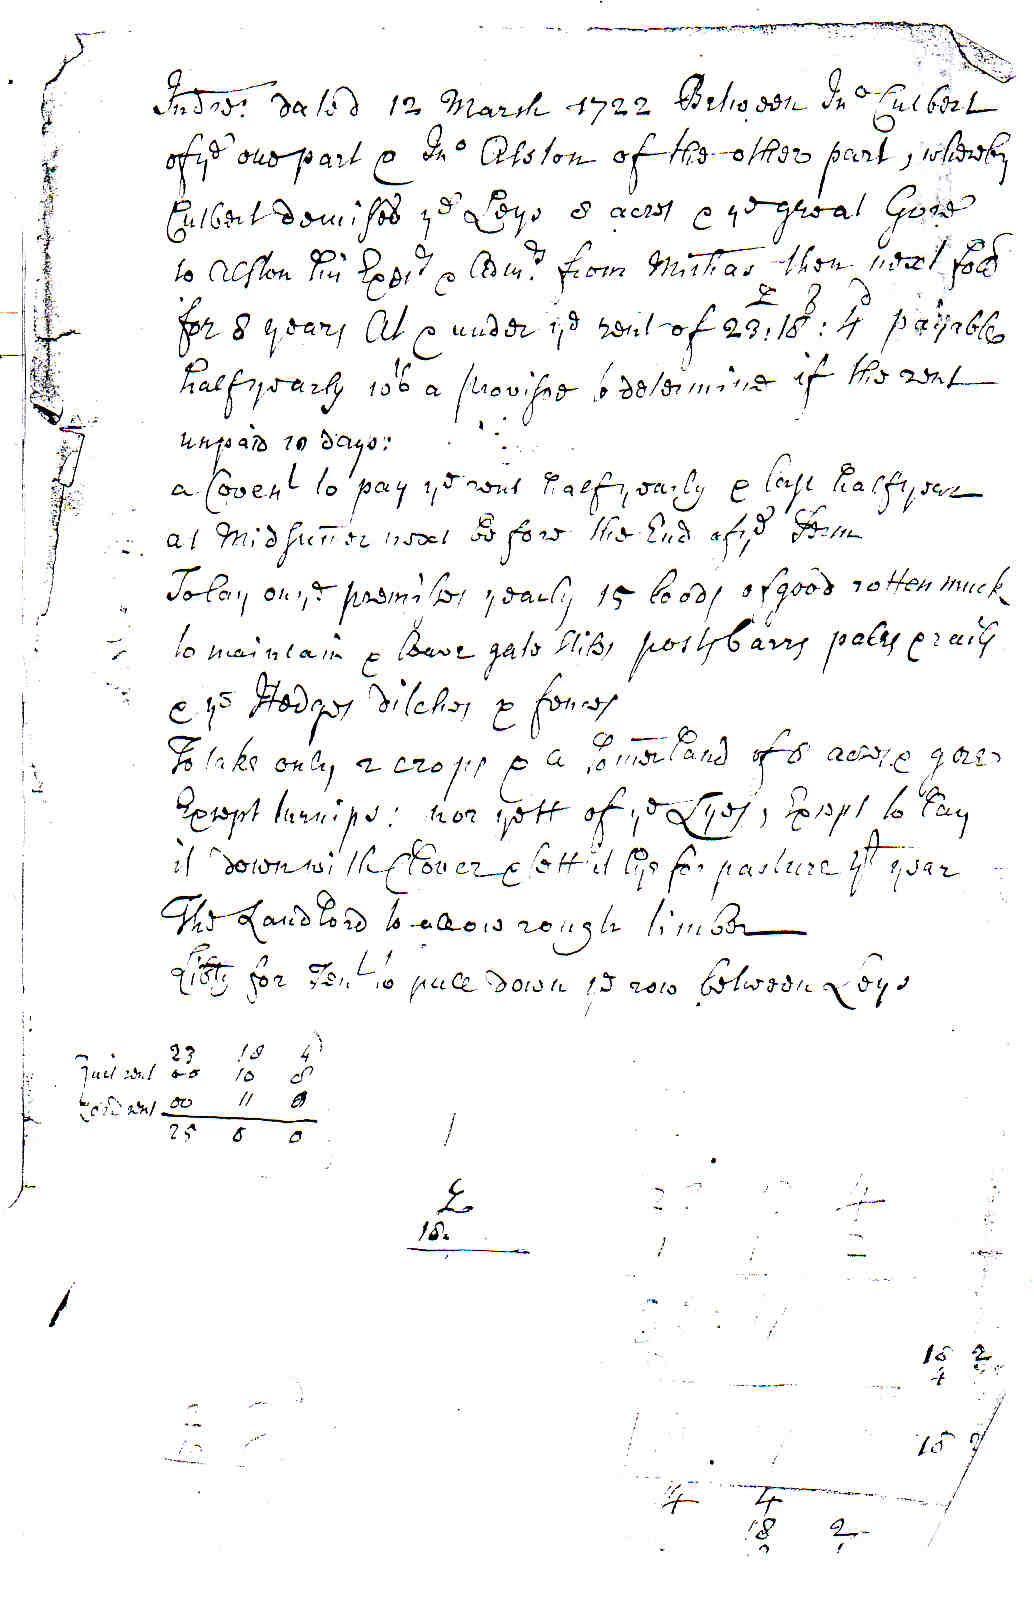 Indre: dated 12 March 1722 Between Jno Culbert
of ye one part & Jno Alston of the other part, whereby
Culbert demised ye Leys 8 acres & ye great Gore
to Alston his Exrs & Admrs from Michas then next
for 8 years At & under ye rent of 23: 18: 4 payable
£ s d
halfyearly wth a provisoe to determine if the rent
unpaid 10 days:
a Covent to pay ye rent halfyearly & last halfyear
at Midsumer next before the End of ye Term
To lay on ye premises yearly 15 loods of good rotten muck
to maintain & leave gate stiles posts barrs pales & rails
& ye Hedges ditches & fences
To take only 2 crops & a somerland of 8 acres & gore
Except turnips: nor yett of ye Lyes, Except to lay
it down with Clover & lett it lye for pasture yt year
The Landlord to allow rough timber
Libty for Tent to pull down ye row between Leys
23 18 4
Quit rent 00 10 8
Lord rent 00 11 0
25 0 0
£
18
4
18 2
4
18 2
4 4
18 2